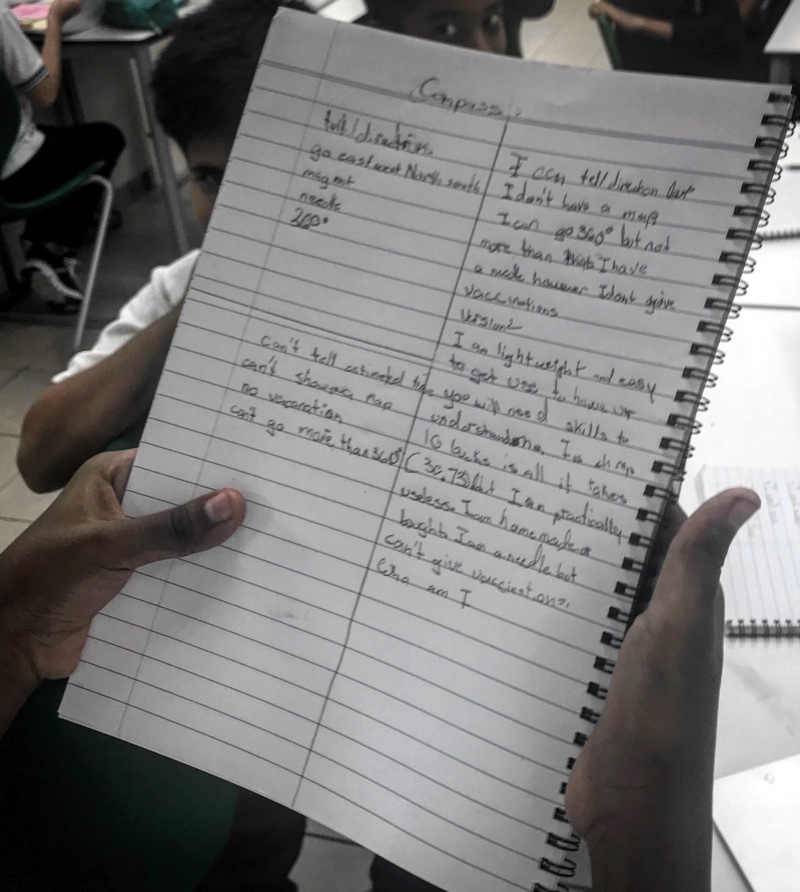 Compass
tell directions
go east west North south
magnet
needle
360°
can't tell estimated time
can't show a map
no vaccination
can't go more than 360°
I can tell direction but
I don't have a map
I can go 360° but not
more than that I have
a needle however I dont give
vaccinations
Version 2
I am lightweight and easy
to get use to however
you will need skills to
understand me. I'm cheap
10 bucks is all it takes
but I am practically
useless. I am homemade or
bought. I am a needle but
can't give
Who am I